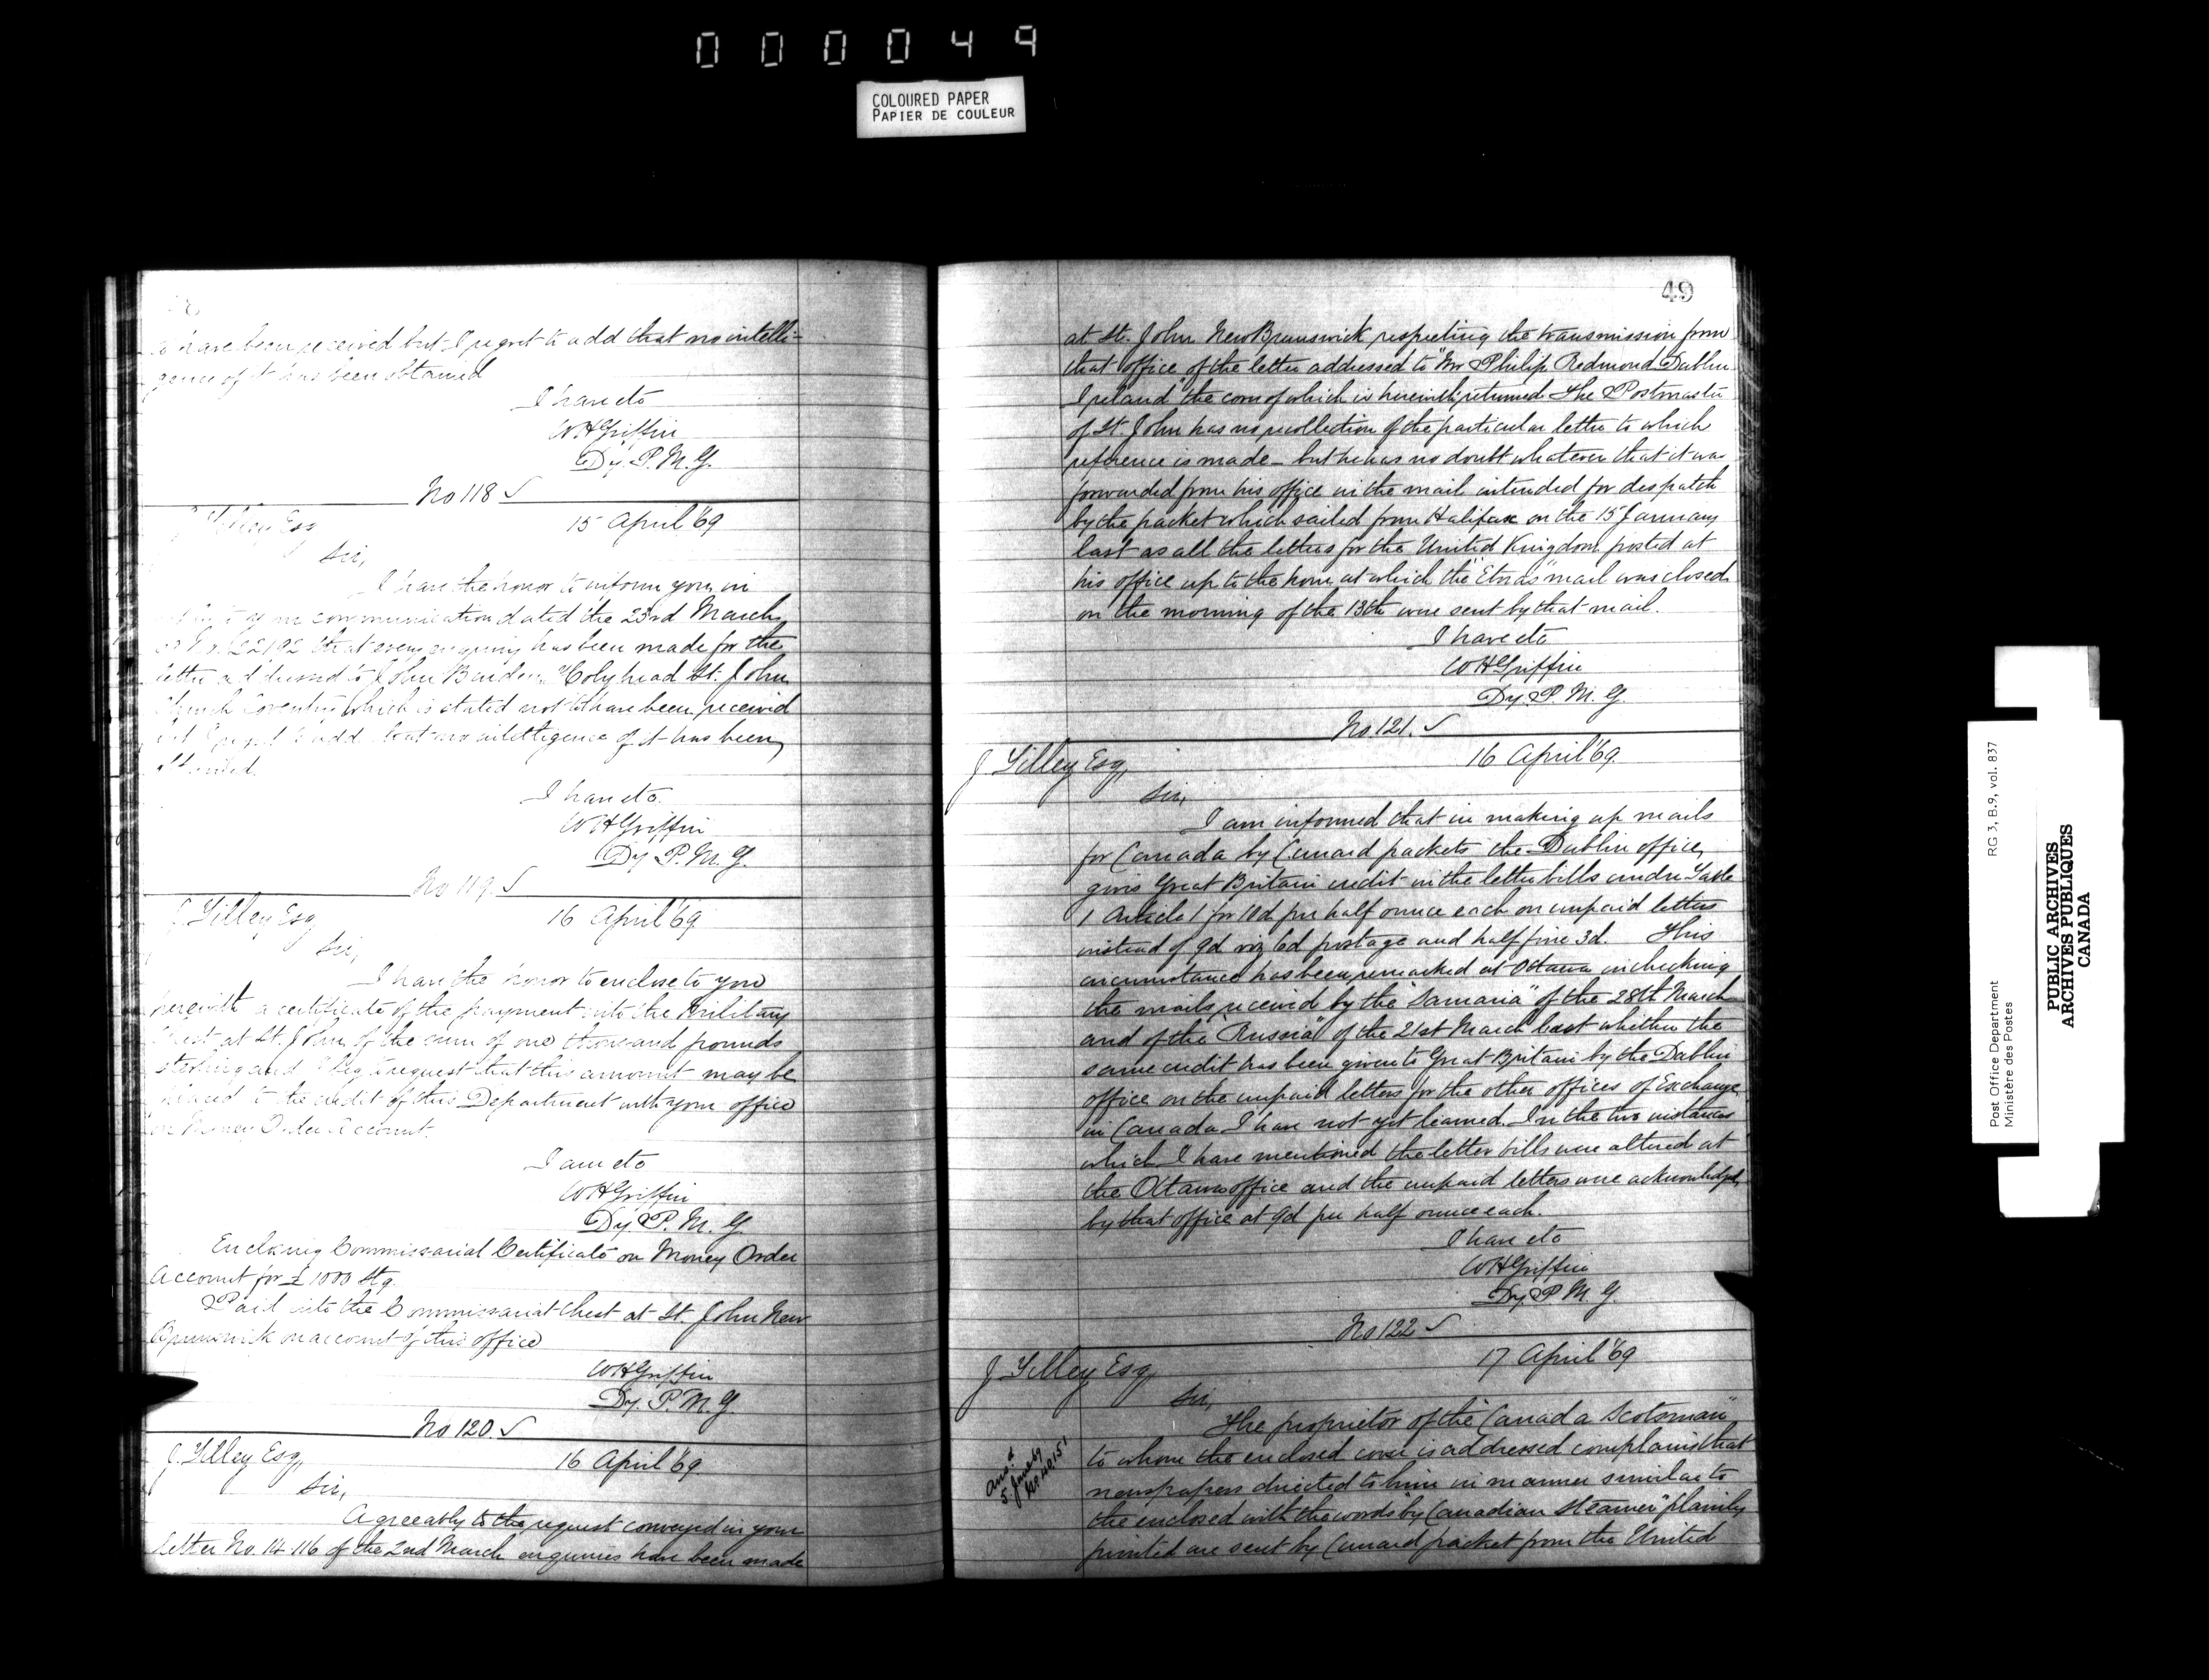 000049
COLOURED PAPER
PAPIER DE COULEUR
to have been received but I regret to add that no intelli-
gence of it has been obtained
I have etc
W H Griffin
Dy. P. M. G.
No 118 ✓
Tilley Esq
15 April '69
Sir,
I have the honor to inform you in
to your communication dated the 23rd March
that every enquiry has been made for the
letter addressed to John Holyhead St. John
Church Coventry which is stated not to have been received
but I regret to add that no intelligence of it has been
obtained.
I have etc.
W H Griffin
Dy P. M. G.
No 119. ✓
J Tilley Esq
16 April '69
Sir,
I have the honor to enclose to you
herewith a certificate of the payment into the Military
Chest at St. John of the sum of one thousand pounds
sterling and I beg to request that this amount may be
placed to the credit of this Department with your office
on Money Order Account.
I am etc
W H Griffin
Dy. P. M. G.
Enclosing Commissariat Certificate on Money Order
Account for £1000 Stg.
Paid into the Commissariat Chest at St. John New
Brunswick on account of this office
W H Griffin
Dy. P. M. G.
No 120. ✓
J. Tilley Esq,
16 April '69.
Sir,
Agreeably to the request conveyed in your
letter No. 14.116 of the 2nd March enquiries have been made
49
at St. John New Brunswick respecting the transmission from
that office of the letter addressed to "Mr Philip Redmond Dublin
Ireland" the cover of which is herewith returned The Postmaster
of St. John has no recollection of the particular letter to which
reference is made - but he has no doubt whatever that it was
forwarded from his office in the mail intended for despatch
by the packet which sailed from Halifax on the 15 January
last as all the letters for the United Kingdom posted at
his office up to the hour at which the "Etnas" mail was closed
on the morning of the 13th were sent by that mail.
I have etc
W H Griffin
Dy. P. M. G.
No 121. ✓
J Tilley Esq,
16 April '69.
Sir,
I am informed that in making up mails
for Canada by Cunard packets the Dublin office,
gives Great Britain credit in the letter bills under Table
1 Article 1 for 10d per half ounce each on unpaid letters
instead of 9d viz 6d postage and half fine 3d. This
circumstance has been remarked at Ottawa in checking
the mails received by the "Samaria" of the 28th March
and of the "Russia" of the 21st March last whether the
same credit has been given to Great Britain by the Dublin
office on the unpaid letters for the other offices of Exchange
in Canada I have not yet learned. In the two instances
which I have mentioned the letter bills were altered at
the Ottawa office and the unpaid letters were acknowledged
by that office at 9d per half ounce each.
I have etc
W H Griffin
Dy. P M. G.
No 122 ✓
J Tilley Esq,
17 April '69
Sir,
The proprietor of the "Canada Scotsman"
Ansd
5 June 69
to whom the enclosed cover is addressed complains that
newspapers directed to him in manner similar to
the enclosed with the words "by Canadian Steamer" plainly
printed are sent by Cunard packet from the United
Post Office Department
Ministère des Postes
RG 3, B.9, vol. 837
PUBLIC ARCHIVES
ARCHIVES PUBLIQUES
CANADA